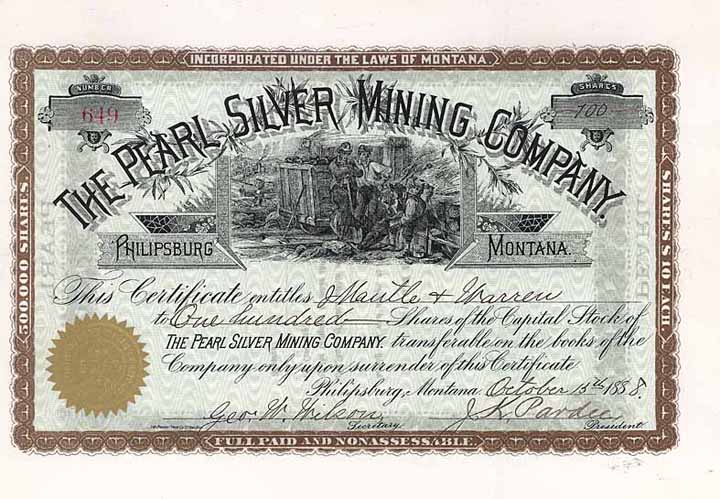 INCORPORATED UNDER THE LAWS OF MONTANA.
NUMBER
649
SHARES
100
THE PEARL SILVER MINING COMPANY.
PHILIPSBURG
MONTANA.
500.000 SHARES.
SHARES $10 EACH.
This Certificate entitles J Mantle & Warren
to One hundred Shares of the Capital Stock of
THE PEARL SILVER MINING COMPANY. transferable on the books of the
Company only upon surrender of this Certificate
Philipsburg, Montana October 15th 1888.
Geo. W. Wilson,
Secretary.
J. K. Pardee
President.
FULL PAID AND NONASSESSABLE.